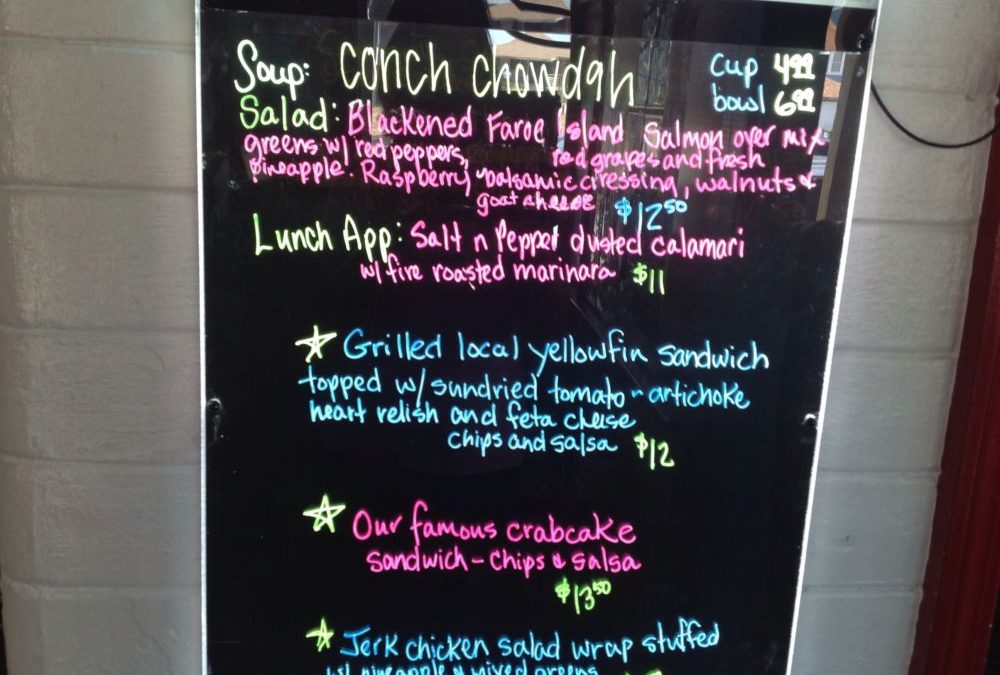 Soup: Conch Chowdah cup 4.99
bowl 6.99
Salad: Blackened Faroe Island Salmon over mix
greens w/ red peppers, red grapes and fresh
pineapple. Raspberry balsamic dressing, walnuts &
goat cheese $12.50
Lunch App: Salt n Pepper dusted calamari
w/ fire roasted marinara $11
☆ Grilled local yellowfin sandwich
topped w/ sundried tomato - artichoke
heart relish and feta cheese
chips and salsa $12
☆ Our famous crabcake
sandwich - chips & salsa
$13.50
☆ Jerk chicken salad wrap stuffed
w/ pineapple & mixed greens